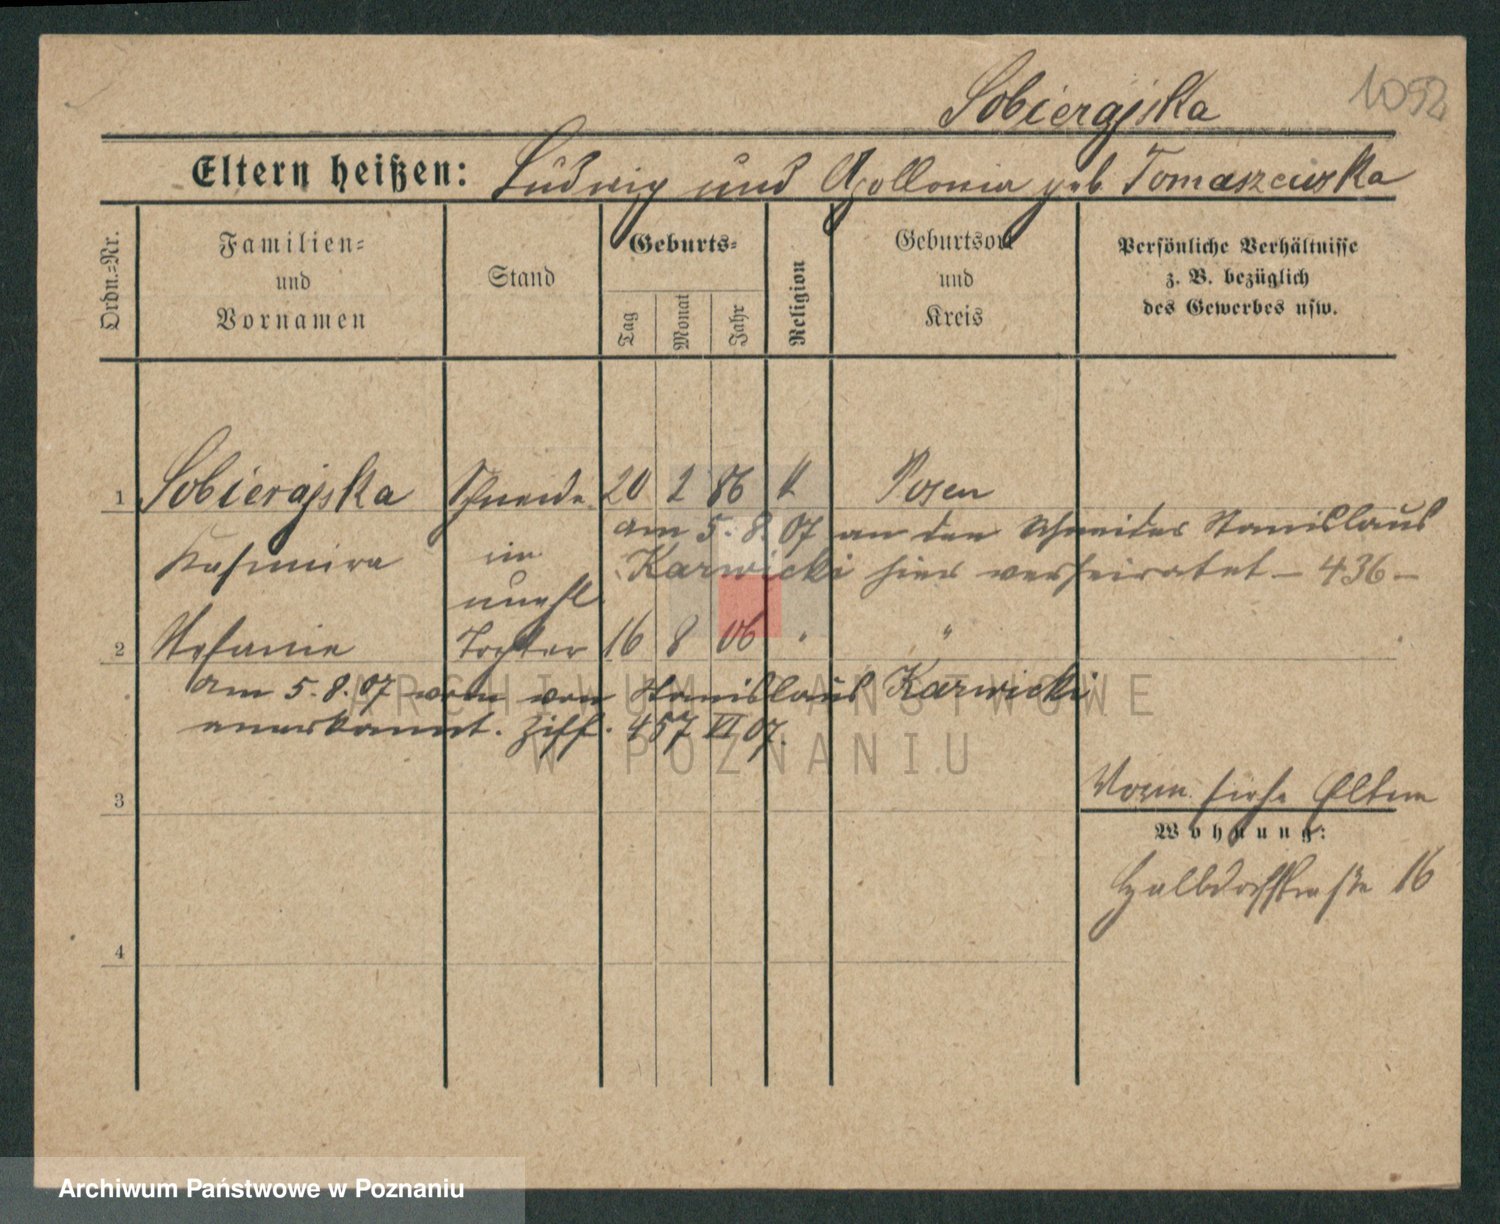 1052
Sobierajska
Eltern heißen: Ludwig und Apollonia geb Tomaszewska
Ordn.=Nr.
Familien=
und
Vornamen
Stand
Geburts=
Tag
Monat
Jahr
Religion
Geburtsort
und
Kreis
Persönliche Verhältnisse
z. B. bezüglich
des Gewerbes usw.
1 Sobierajska Schneide 20 2 86 k Posen
am 5.8.07 an den Schneider Stanislaus
Kasimira rin Karwicki hier verheiratet – 436 –
unehl
2 Stefanie Tochter 16 8 06 " "
am 5.8.07 vom von Stanislaus Karwicki
anerkannt. Ziff. 457 VI 07.
ARCHIWUM PAŃSTWOWE
W POZNANIU
3
Vorm. siehe Eltern
Wohnung:
Halbdorfstraße 16
4
Archiwum Państwowe w Poznaniu